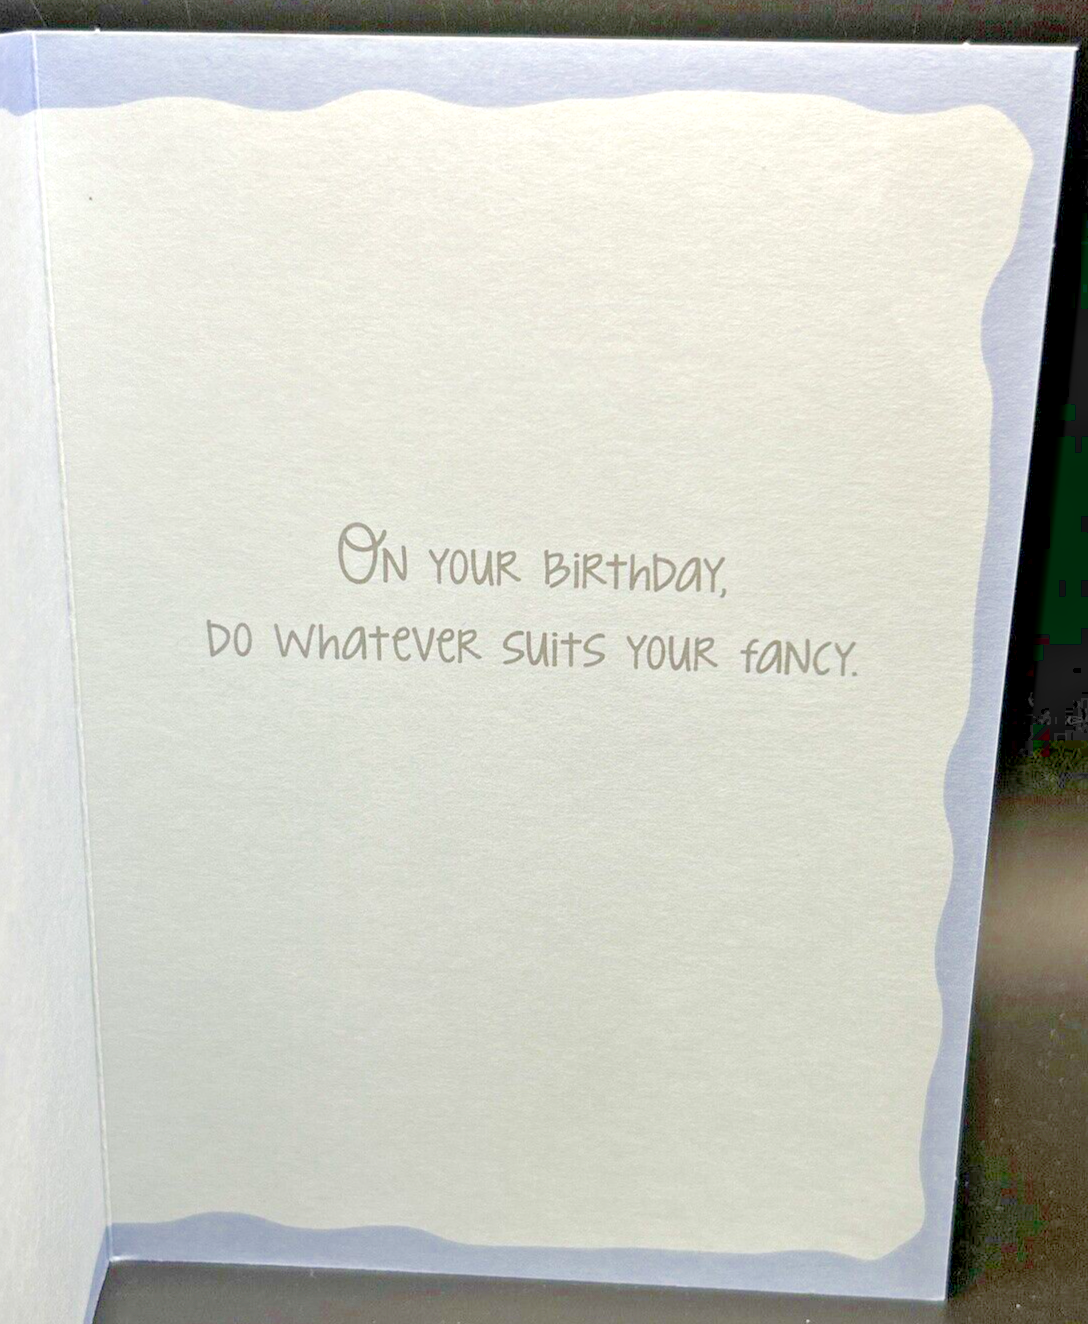 On your birthday,
do whatever suits your fancy.